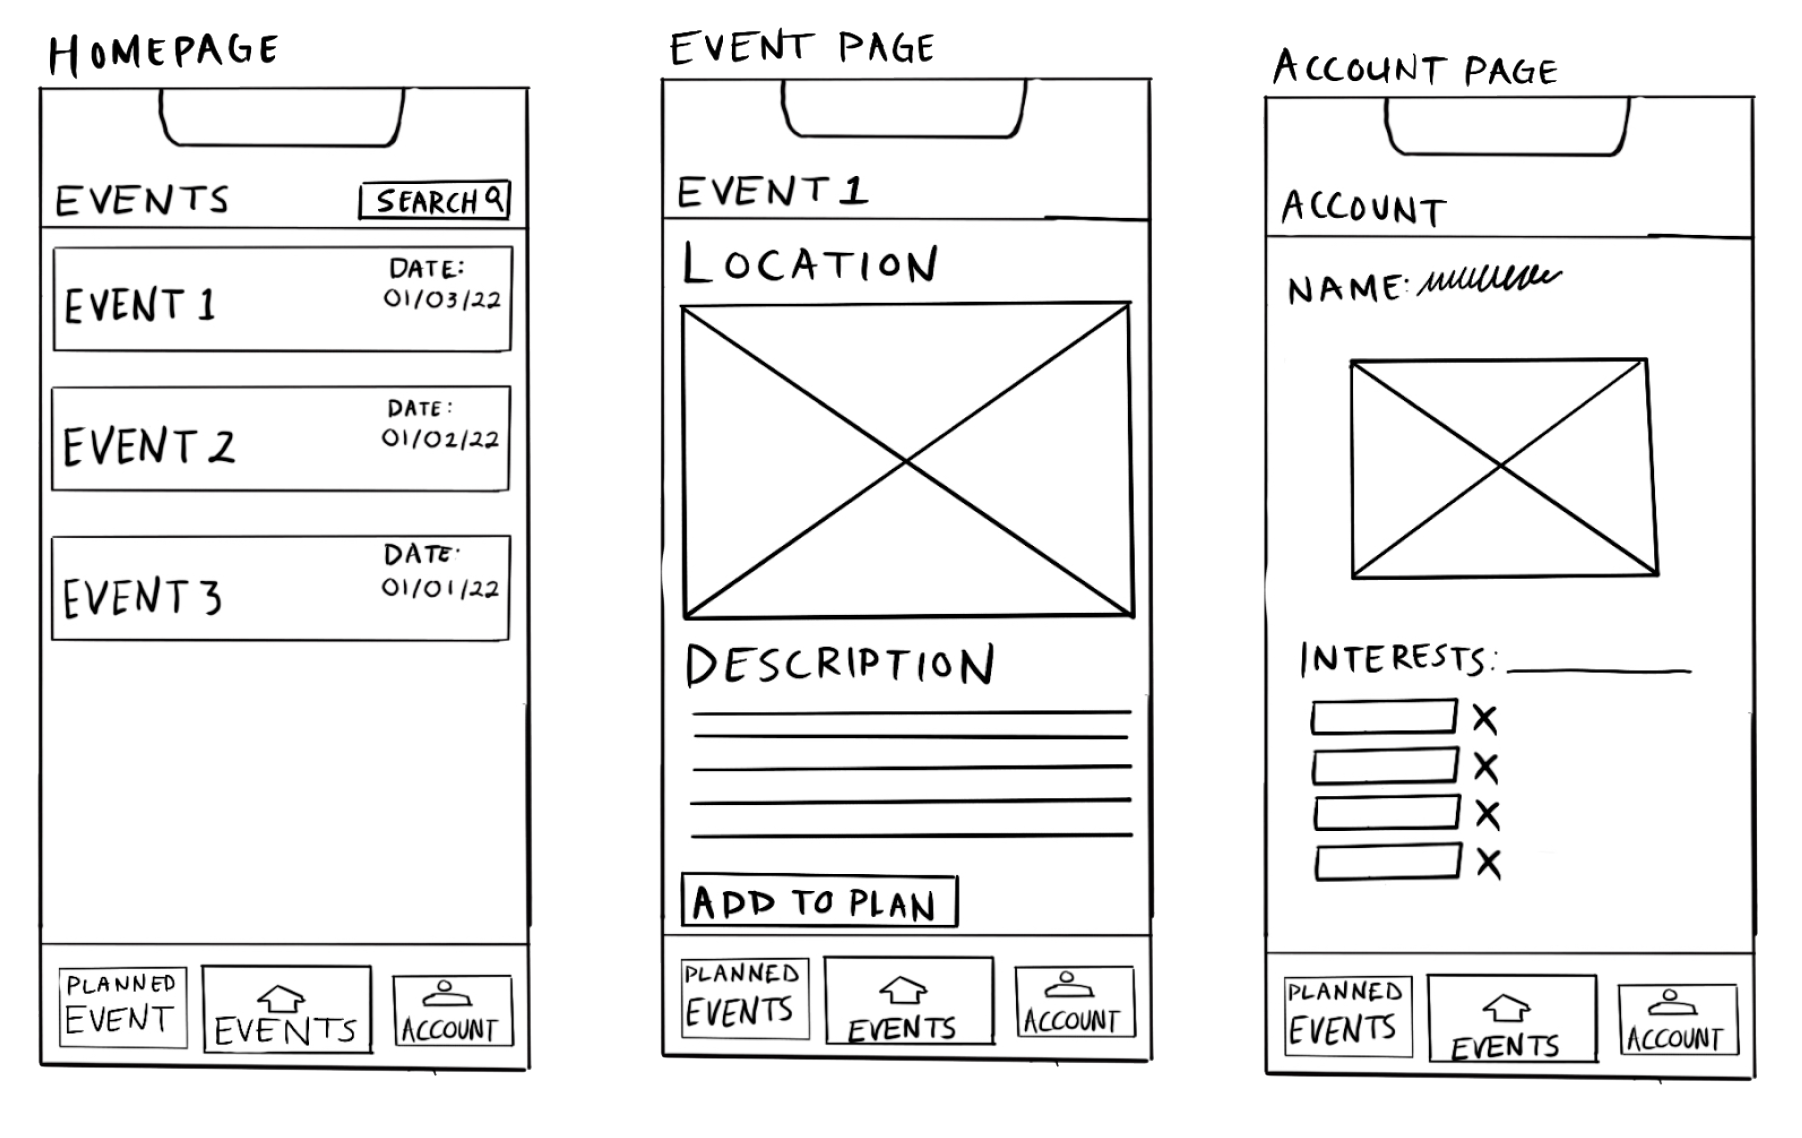 HOMEPAGE
EVENTS
SEARCH
EVENT 1
DATE:
01/03/22
EVENT 2
DATE:
01/02/22
EVENT 3
DATE:
01/01/22
PLANNED
EVENT
EVENTS
ACCOUNT
EVENT PAGE
EVENT 1
LOCATION
DESCRIPTION
ADD TO PLAN
PLANNED
EVENTS
EVENTS
ACCOUNT
ACCOUNT PAGE
ACCOUNT
NAME:
INTERESTS:
X
X
X
X
PLANNED
EVENTS
EVENTS
ACCOUNT